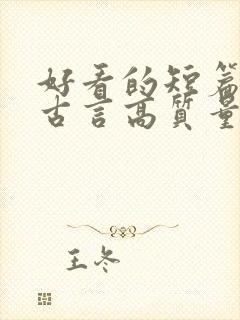 好看的短篇
古言高质量
王冬